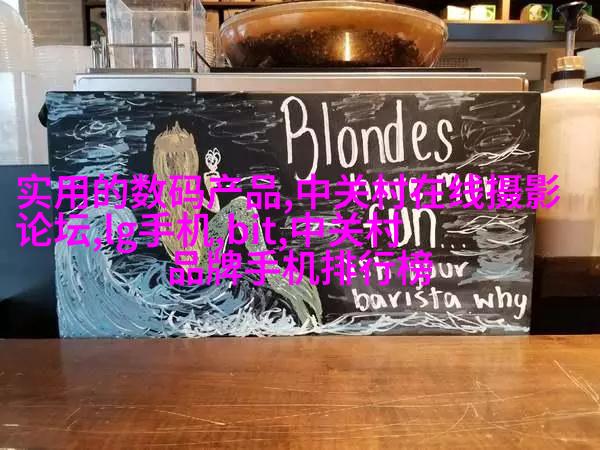 Blondes
实用的数码产品,中关村在线摄影
论坛,lg手机,bit,中关村
品牌手机排行榜
barista why